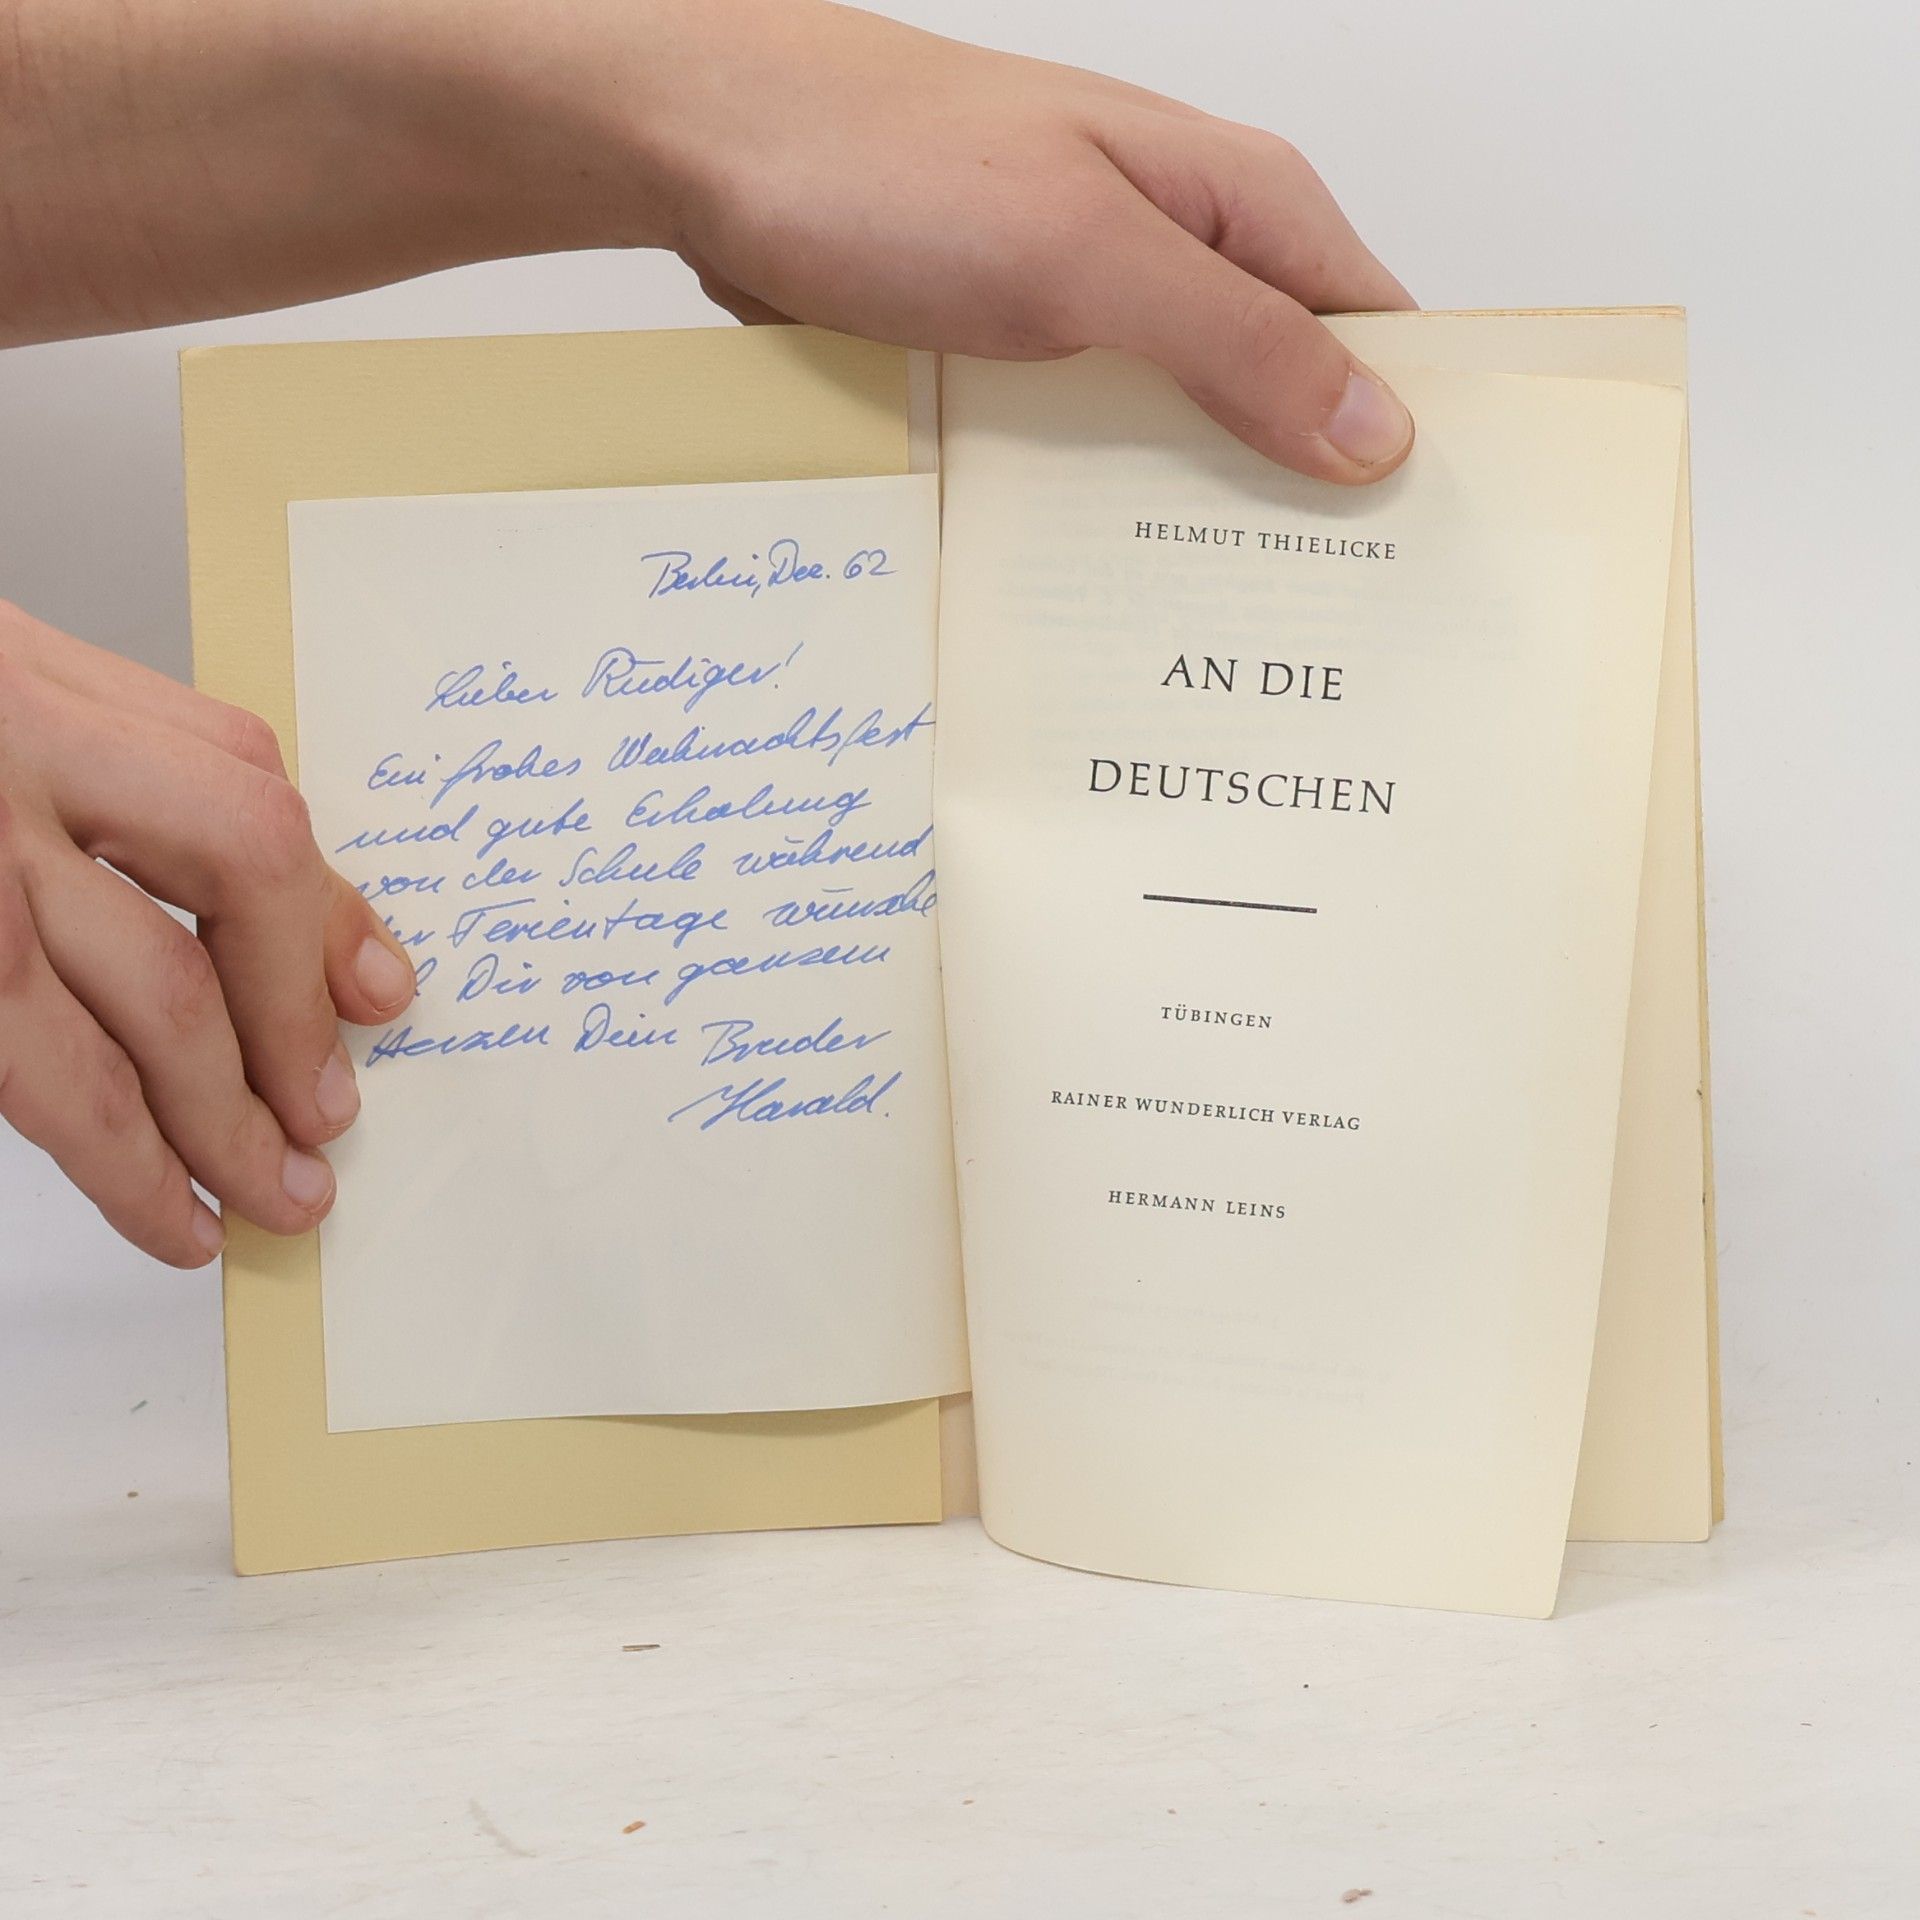 Berlin, Dez. 62
Lieber Rüdiger!
Ein frohes Weihnachtsfest
und gute Erholung
von der Schule während
der Ferientage wünsche
Dir von ganzem
Herzen Dein Bruder
Harald.
HELMUT THIELICKE
AN DIE
DEUTSCHEN
TÜBINGEN
RAINER WUNDERLICH VERLAG
HERMANN LEINS